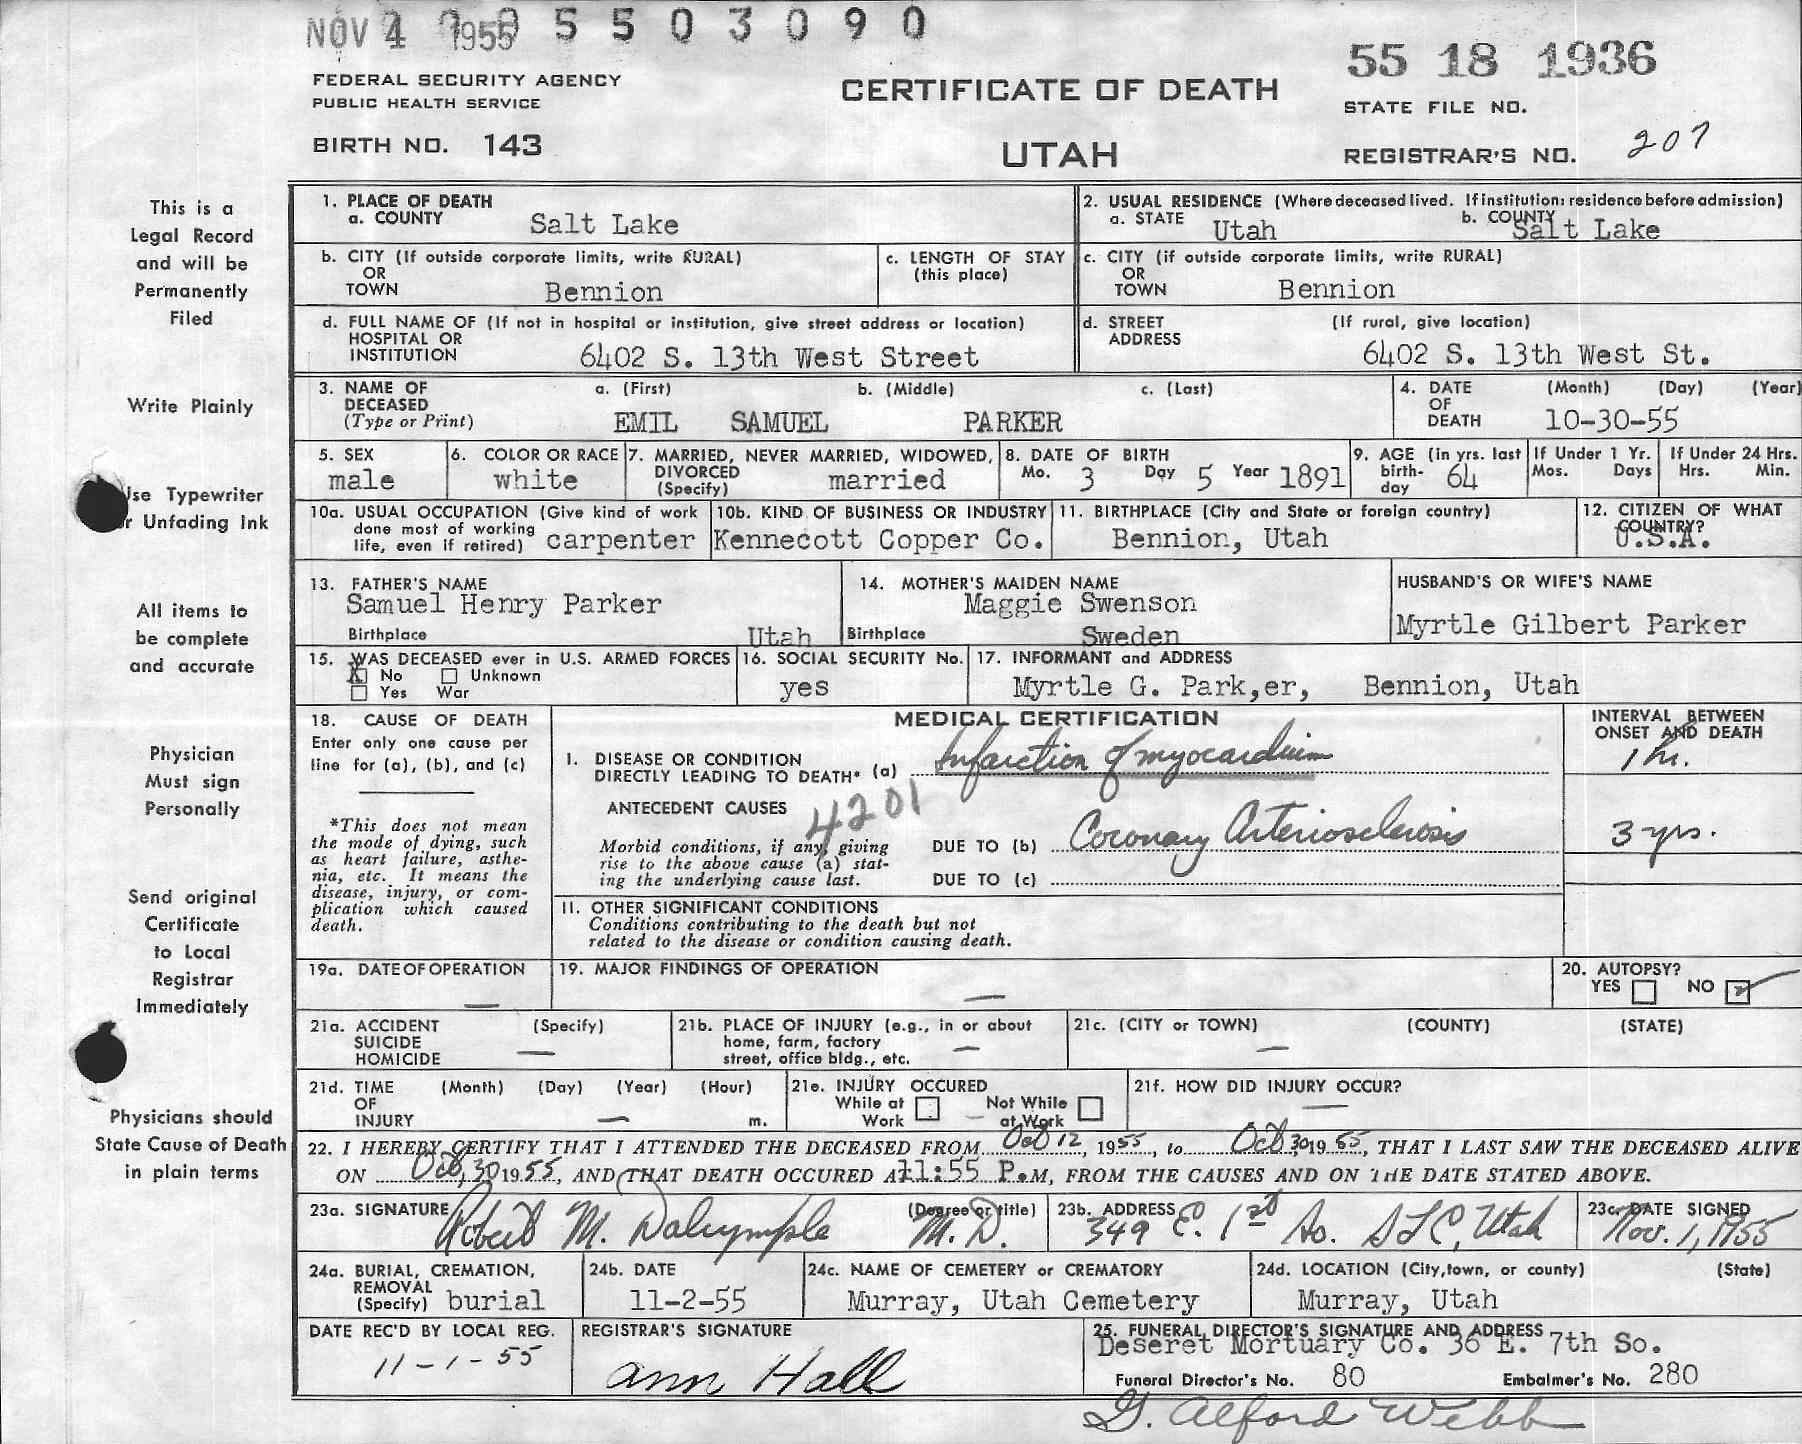 NOV 4 1955 5 5 0 3 0 9 0
55 18 1936
FEDERAL SECURITY AGENCY
PUBLIC HEALTH SERVICE
CERTIFICATE OF DEATH
STATE FILE NO.
BIRTH NO. 143
UTAH
REGISTRAR'S NO. 207
This is a
Legal Record
and will be
Permanently
Filed
Write Plainly
Use Typewriter
or Unfading Ink
All items to
be complete
and accurate
Physician
Must sign
Personally
Send original
Certificate
to Local
Registrar
Immediately
Physicians should
State Cause of Death
in plain terms
1. PLACE OF DEATH
a. COUNTY Salt Lake
2. USUAL RESIDENCE (Where deceased lived. If institution: residence before admission)
a. STATE Utah b. COUNTY Salt Lake
b. CITY (If outside corporate limits, write RURAL)
OR
TOWN Bennion
c. LENGTH OF STAY
(this place)
c. CITY (if outside corporate limits, write RURAL)
OR
TOWN Bennion
d. FULL NAME OF (If not in hospital or institution, give street address or location)
HOSPITAL OR
INSTITUTION 6402 S. 13th West Street
d. STREET (If rural, give location)
ADDRESS 6402 S. 13th West St.
3. NAME OF a. (First) b. (Middle) c. (Last)
DECEASED
(Type or Print) EMIL SAMUEL PARKER
4. DATE (Month) (Day) (Year)
OF
DEATH 10-30-55
5. SEX
male
6. COLOR OR RACE
white
7. MARRIED, NEVER MARRIED, WIDOWED,
DIVORCED
(Specify) married
8. DATE OF BIRTH
Mo. 3 Day 5 Year 1891
9. AGE (in yrs. last
birth-
day 64
If Under 1 Yr.
Mos. Days
If Under 24 Hrs.
Hrs. Min.
10a. USUAL OCCUPATION (Give kind of work
done most of working
life, even if retired) carpenter
10b. KIND OF BUSINESS OR INDUSTRY
Kennecott Copper Co.
11. BIRTHPLACE (City and State or foreign country)
Bennion, Utah
12. CITIZEN OF WHAT
COUNTRY?
U.S.A.
13. FATHER'S NAME
Samuel Henry Parker
Birthplace Utah
14. MOTHER'S MAIDEN NAME
Maggie Swenson
Birthplace Sweden
HUSBAND'S OR WIFE'S NAME
Myrtle Gilbert Parker
15. WAS DECEASED ever in U.S. ARMED FORCES
X No Unknown
Yes War
16. SOCIAL SECURITY No.
yes
17. INFORMANT and ADDRESS
Myrtle G. Park,er, Bennion, Utah
18. CAUSE OF DEATH
Enter only one cause per
line for (a), (b), and (c)
*This does not mean
the mode of dying, such
as heart failure, asthe-
nia, etc. It means the
disease, injury, or com-
plication which caused
death.
MEDICAL CERTIFICATION
INTERVAL BETWEEN
ONSET AND DEATH
I. DISEASE OR CONDITION
DIRECTLY LEADING TO DEATH* (a) Infarction of myocardium 1 hr.
ANTECEDENT CAUSES 4201
Morbid conditions, if any, giving
rise to the above cause (a) stat-
ing the underlying cause last.
DUE TO (b) Coronary Arteriosclerosis 3 yrs.
DUE TO (c)
II. OTHER SIGNIFICANT CONDITIONS
Conditions contributing to the death but not
related to the disease or condition causing death.
19a. DATE OF OPERATION
—
19. MAJOR FINDINGS OF OPERATION
—
20. AUTOPSY?
YES NO ✓
21a. ACCIDENT (Specify)
SUICIDE
HOMICIDE —
21b. PLACE OF INJURY (e.g., in or about
home, farm, factory
street, office bldg., etc. —
21c. (CITY or TOWN) (COUNTY) (STATE)
—
21d. TIME (Month) (Day) (Year) (Hour)
OF
INJURY — m.
21e. INJURY OCCURED
While at Not While
Work — at Work
21f. HOW DID INJURY OCCUR?
—
22. I HEREBY CERTIFY THAT I ATTENDED THE DECEASED FROM Oct 12, 1955, to Oct 30 1955, THAT I LAST SAW THE DECEASED ALIVE
ON Oct, 30 1955, AND THAT DEATH OCCURED AT 11:55 P.M, FROM THE CAUSES AND ON THE DATE STATED ABOVE.
23a. SIGNATURE (Degree or title)
Robert M. Dalrymple M.D.
23b. ADDRESS
349 E. 1st So. SLC, Utah
23c. DATE SIGNED
Nov. 1, 1955
24a. BURIAL, CREMATION,
REMOVAL
(Specify) burial
24b. DATE
11-2-55
24c. NAME OF CEMETERY or CREMATORY
Murray, Utah Cemetery
24d. LOCATION (City, town, or county) (State)
Murray, Utah
DATE REC'D BY LOCAL REG.
11-1-55
REGISTRAR'S SIGNATURE
Ann Hall
25. FUNERAL DIRECTOR'S SIGNATURE AND ADDRESS
Deseret Mortuary Co. 36 E. 7th So.
Funeral Director's No. 80 Embalmer's No. 280
G. Alford Webb